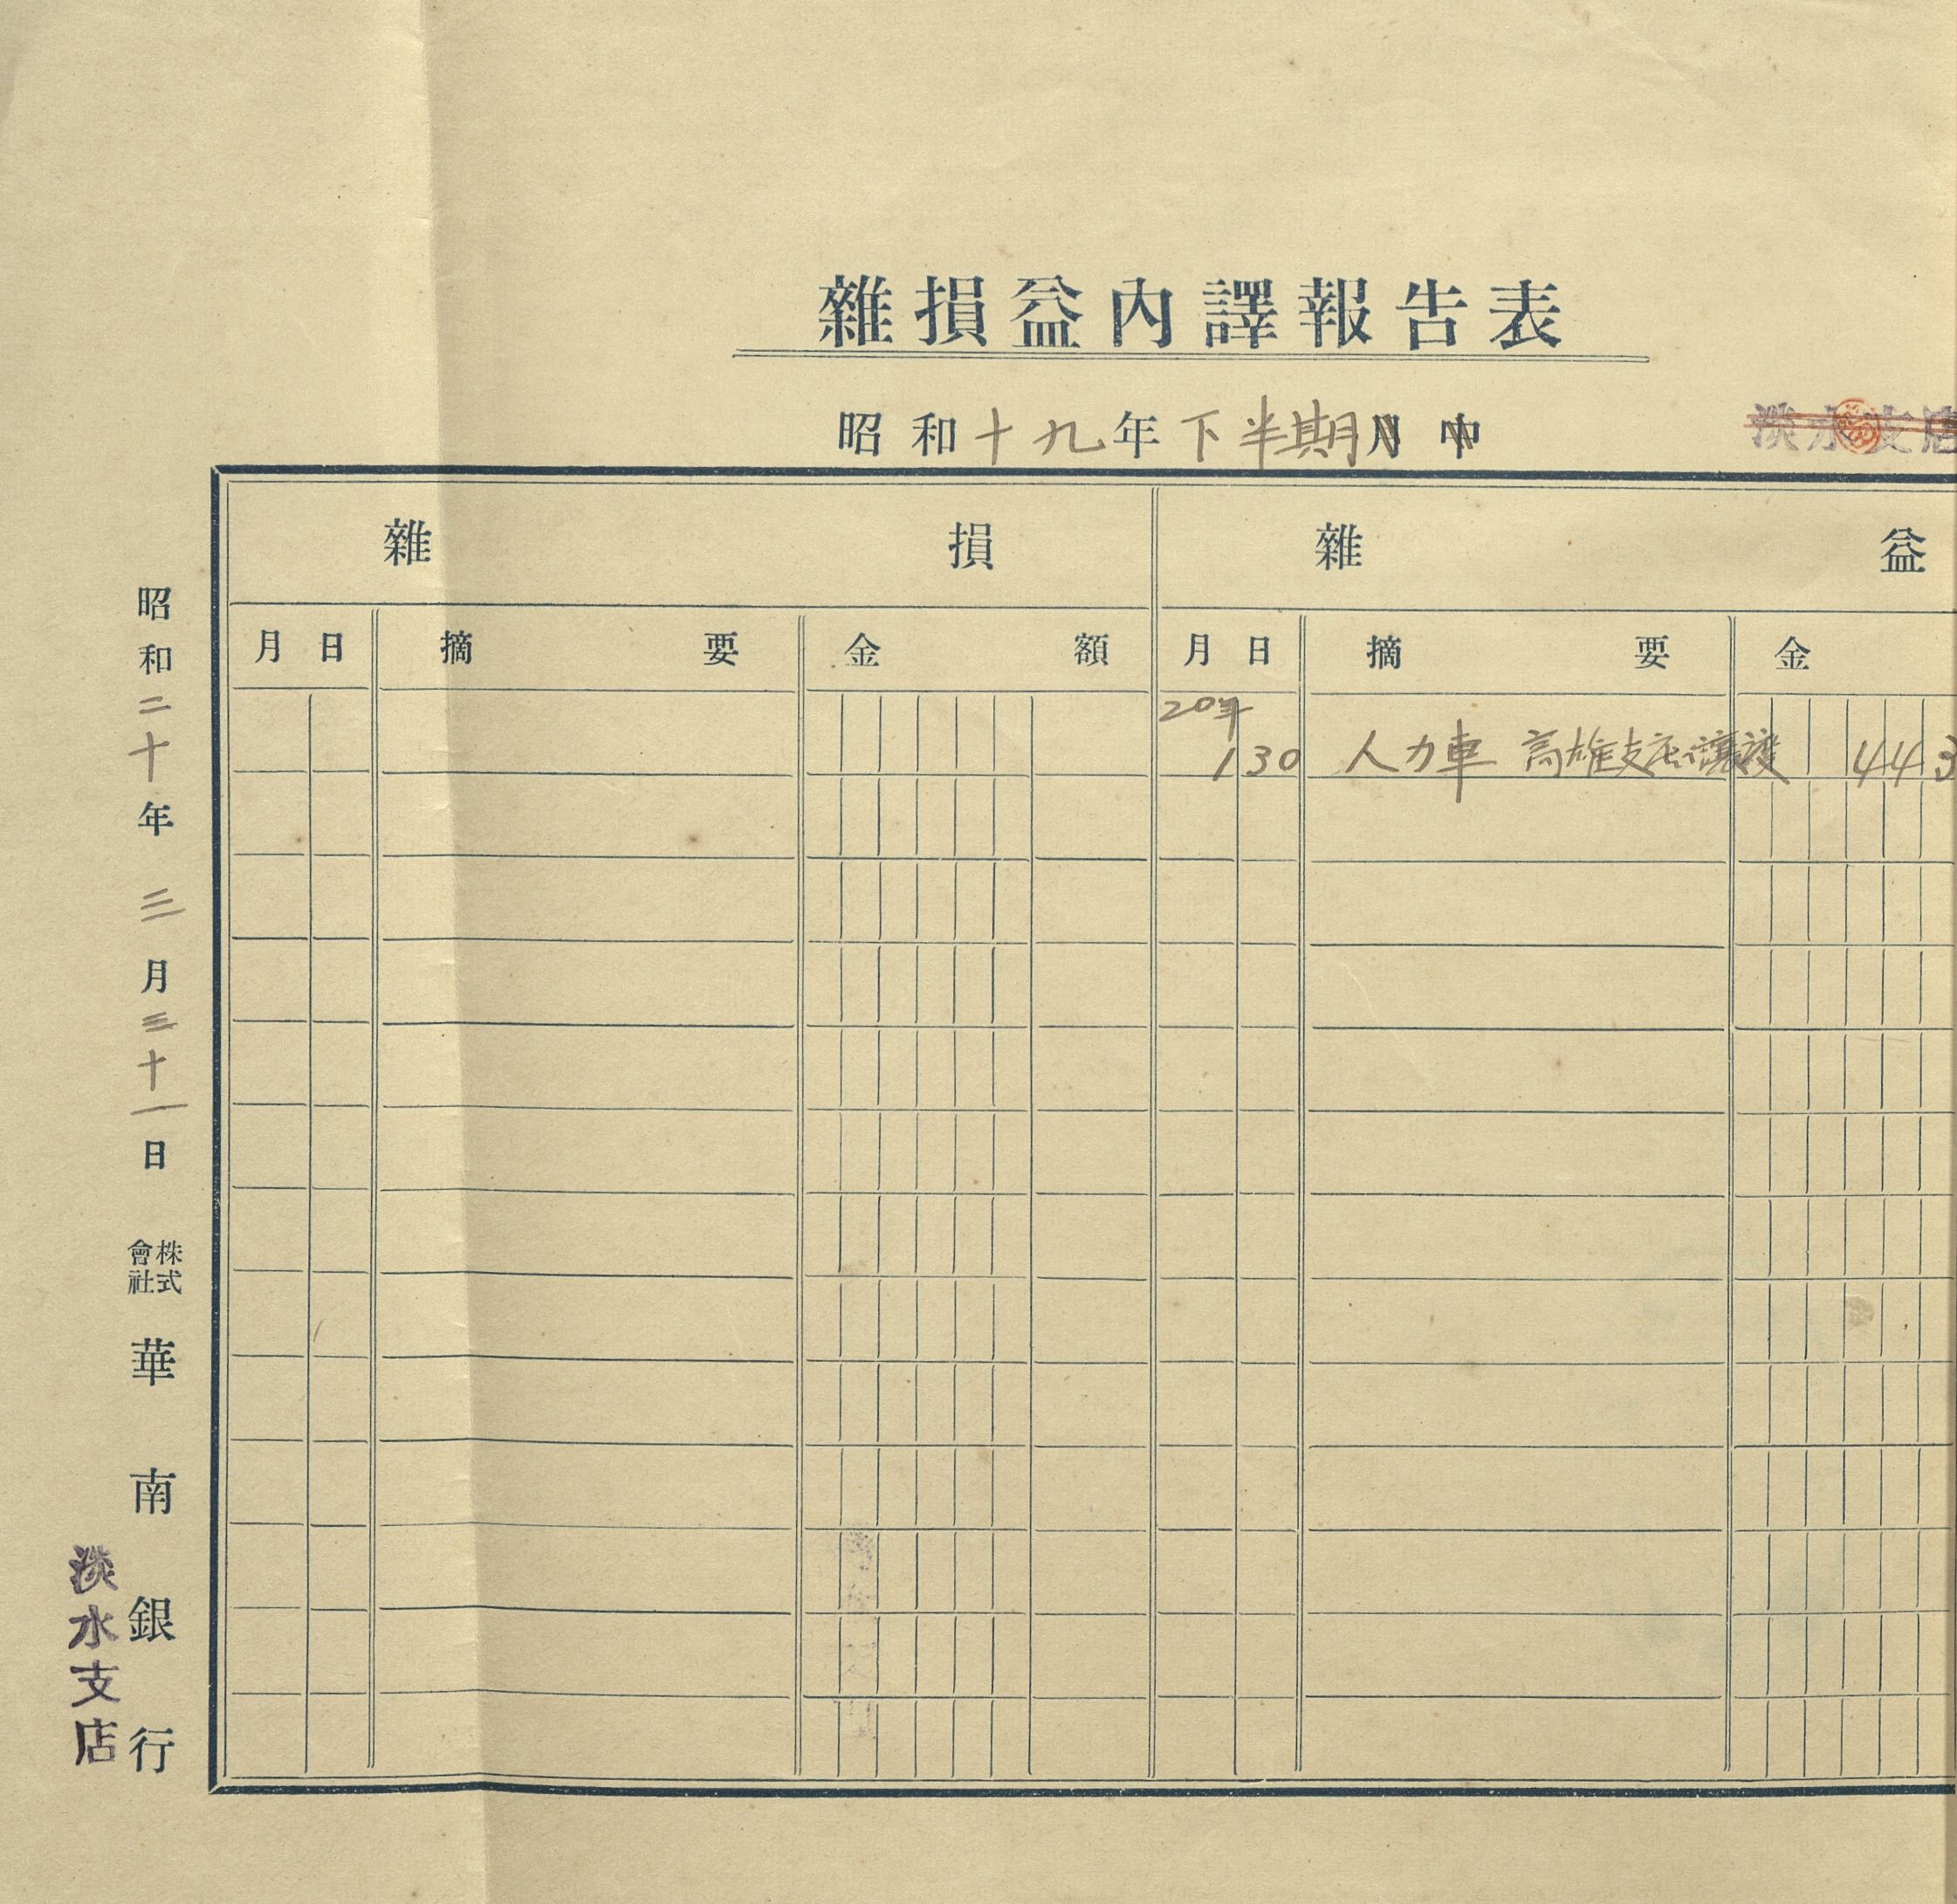 雜損益內譯報告表
昭和十九年下半期月中
淡水支店
雜損 雜益
月日 摘要 金額 月日 摘要 金
20年
1 30 人力車 高雄支店ヘ讓渡 443
昭和二十年三月三十一日
株式會社華南銀行
淡水支店